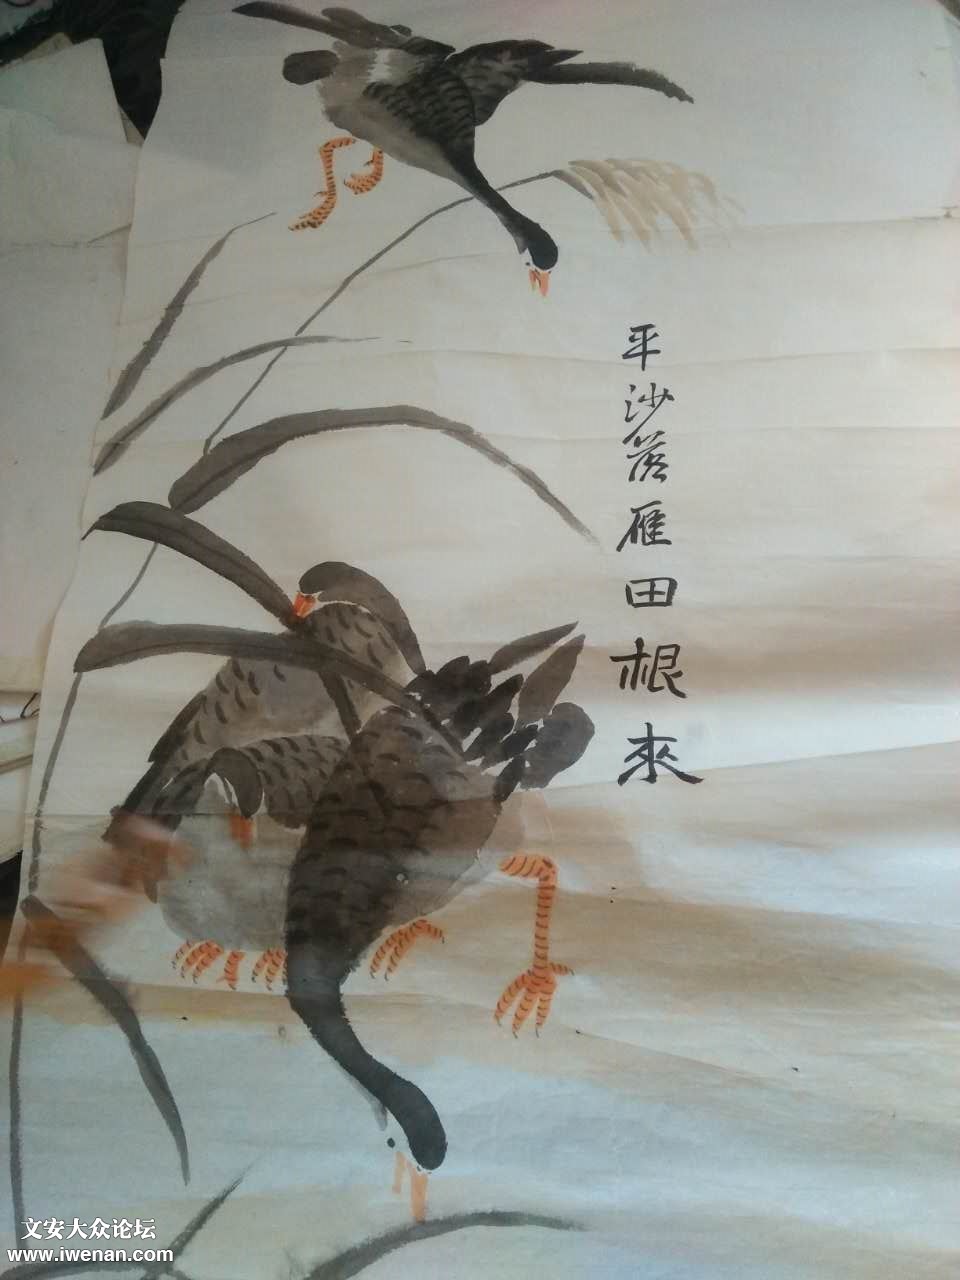 平沙落雁田根來
文安大众论坛
www.iwenan.com